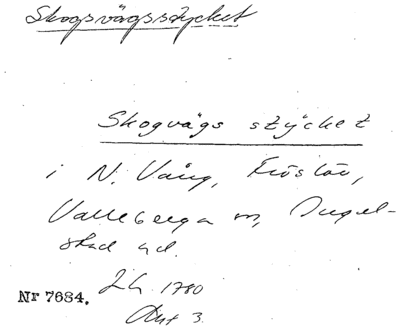 Skogsvägsstycket
Skogvägs stÿcket
i N. Vång, Fröslöv,
Valleberga sn, Ingel-
stad hd.
Nr 7684. Lh. 1780
Akt 3.